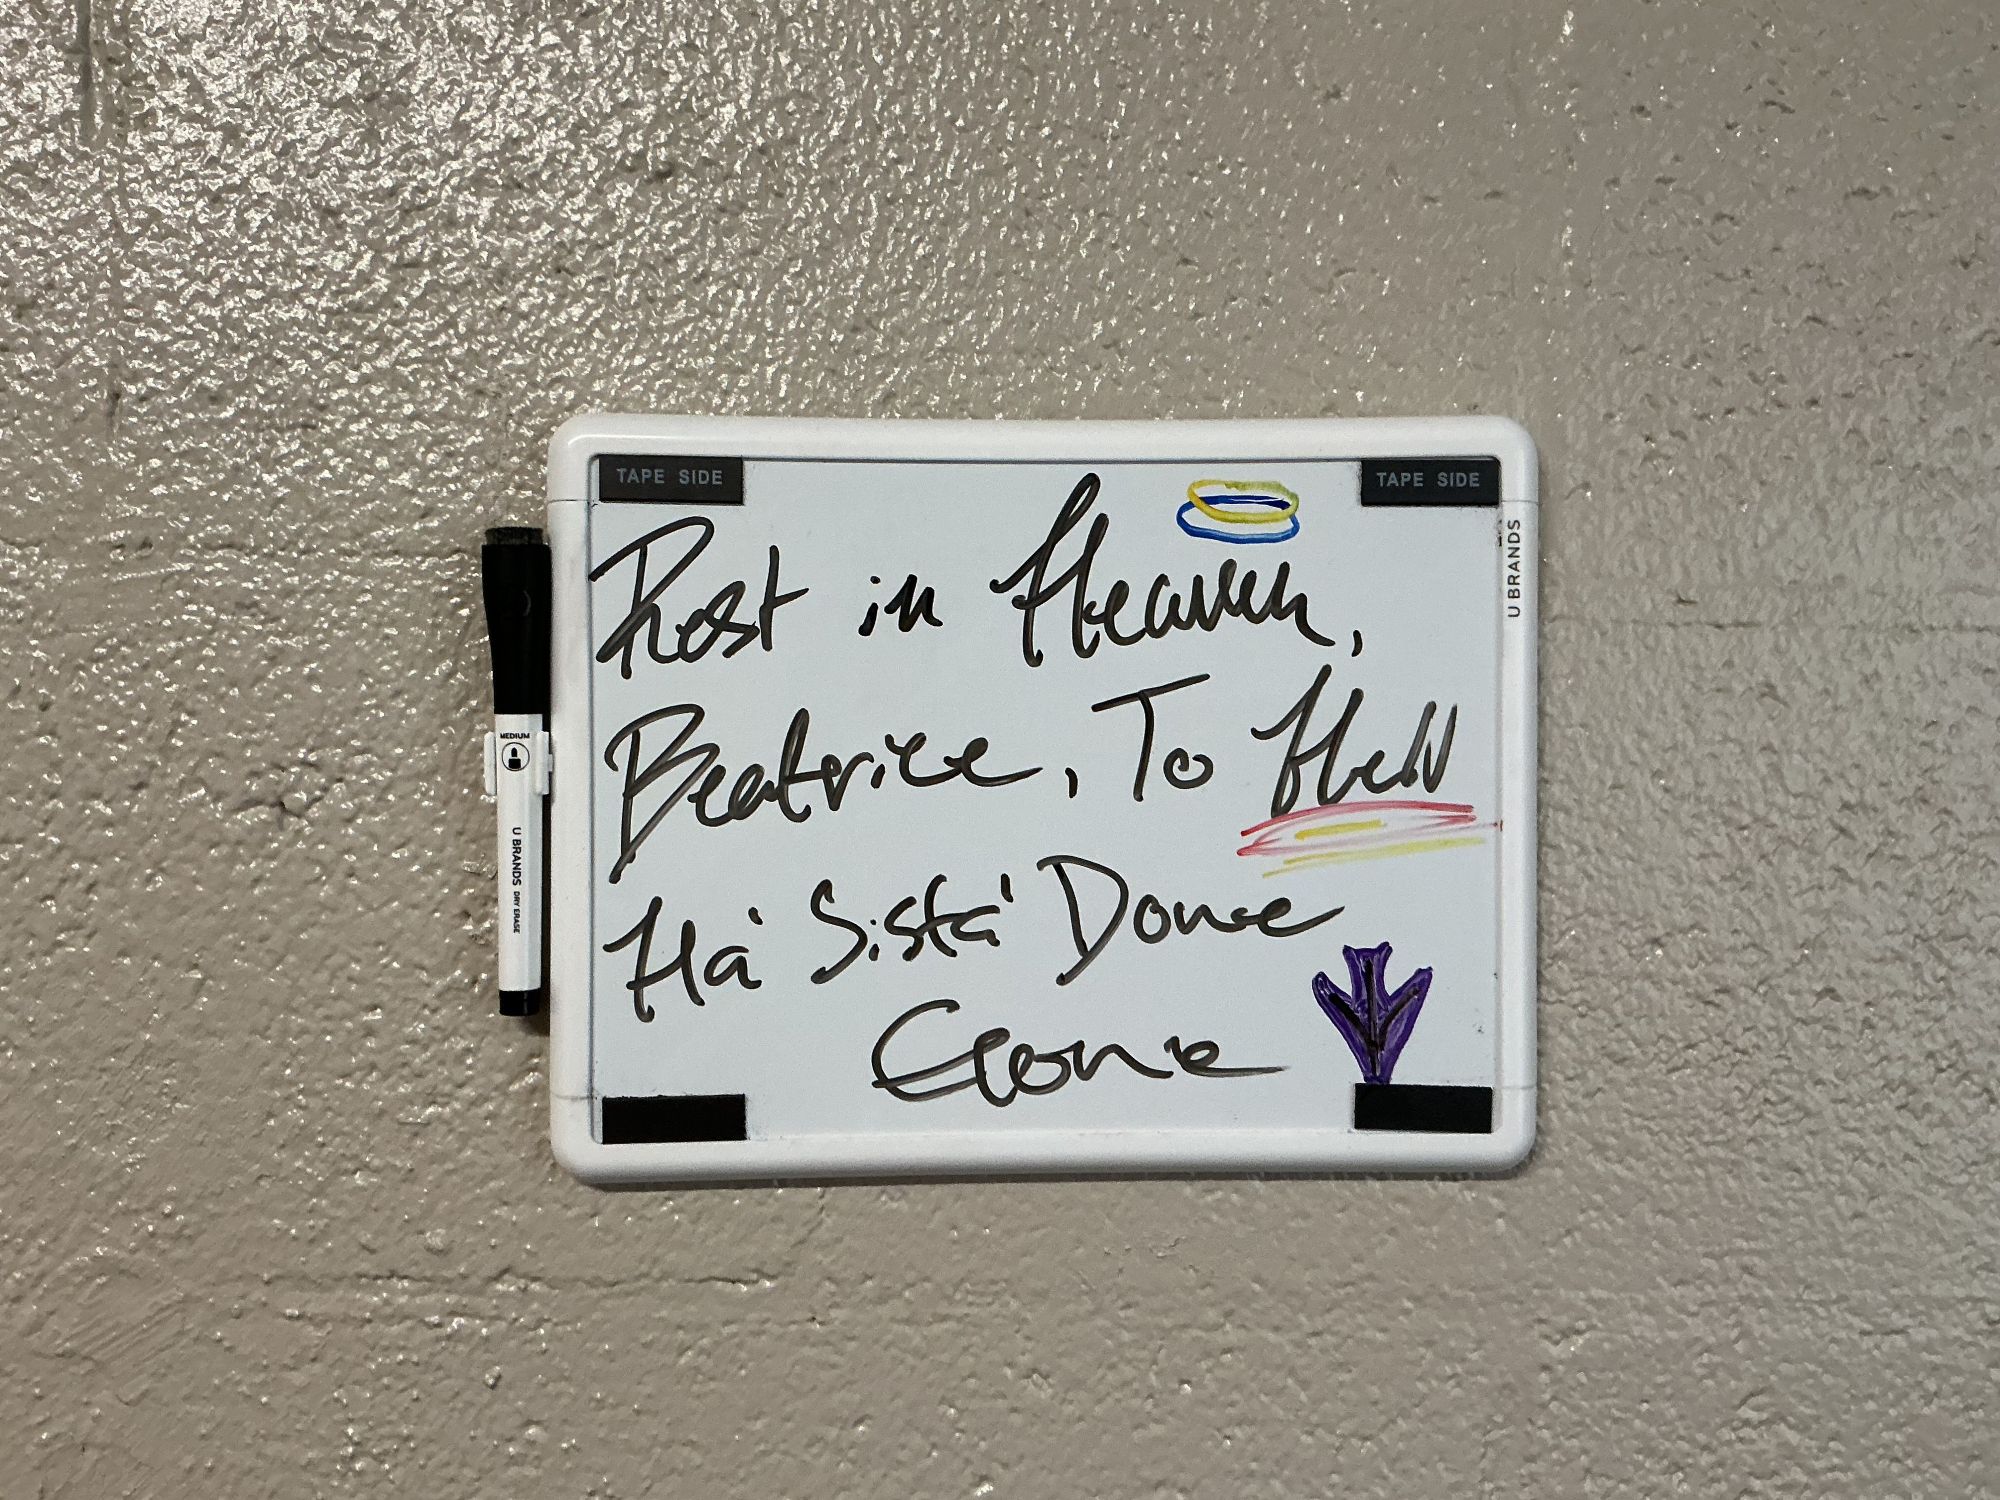 TAPE SIDE
TAPE SIDE
Rest in Heaven,
Beatrice, To Hell
Ha' Sista' Done
Gone
U BRANDS
MEDIUM
U BRANDS DRY ERASE